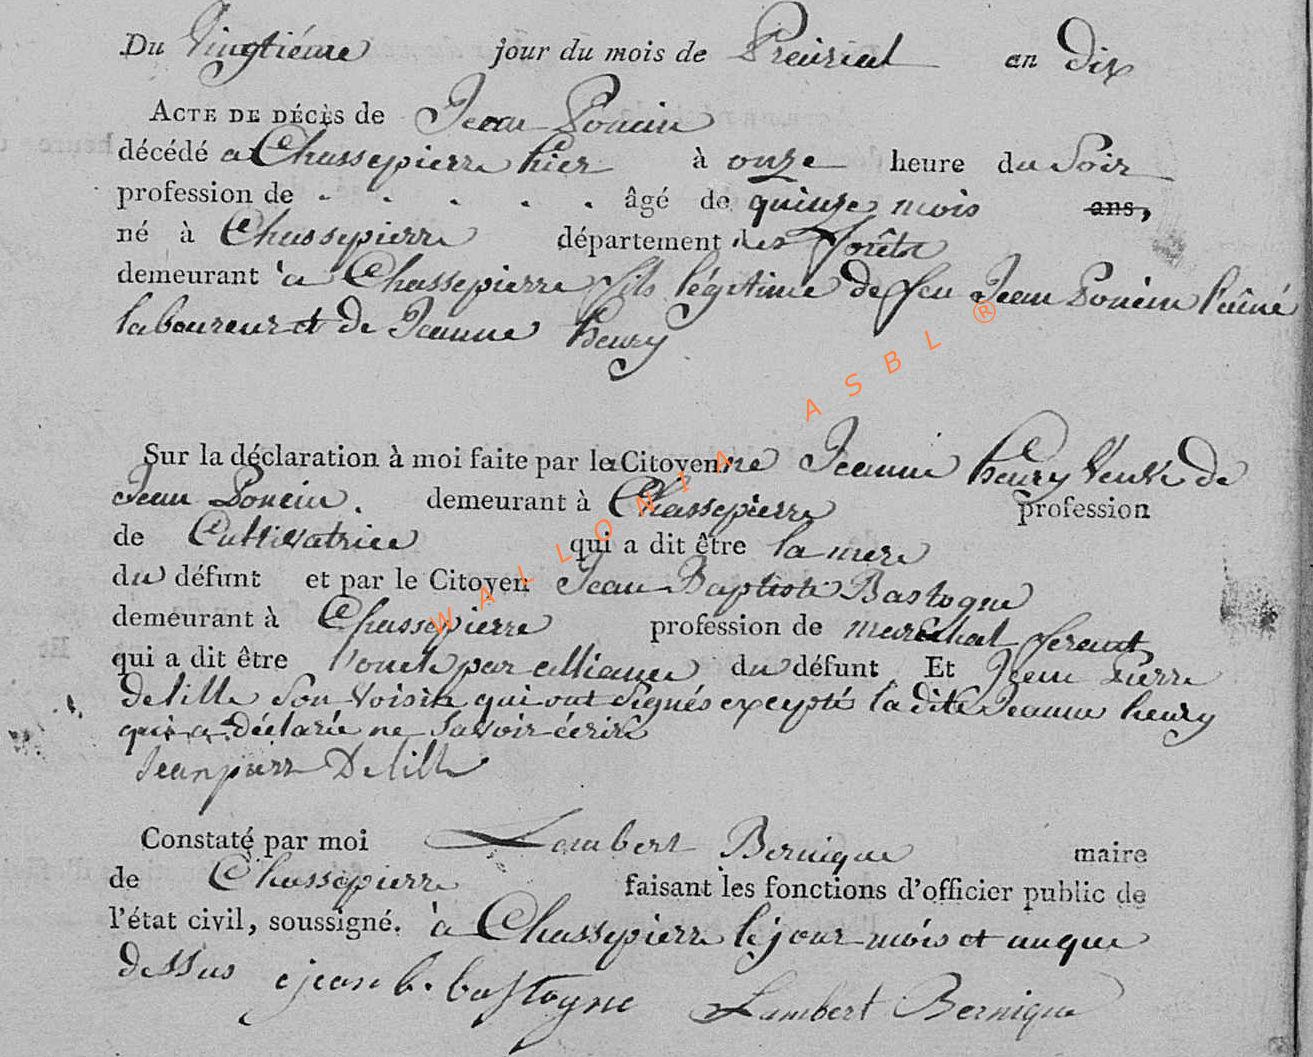 Du Vingtiéme jour du mois de Preirial an dix
ACTE DE DÉCÈS de Jean Poncin
décédé a Chassepierre hier à onze heure du Soir
profession de . . . . . âgé de quinze mois ans,
né à Chassepierre département des forêts
demeurant à Chassepierre fils légitime de feu Jean Poncin l'aîné
laboureur et de Jeanne henry
Sur la déclaration à moi faite par la Citoyenne Jeanne henry Veuve de
Jean Poncin. demeurant à Chassepierre profession
de Cultivatrice qui a dit être la mere
du défunt et par le Citoyen Jean Baptiste Bastogne
demeurant à Chassepierre profession de marechal ferant
qui a dit être l'oncle par alliance du défunt Et Jean Pierre
delille Son Voisin qui ont Signés excepté la dite Jeanne henry
qui a déclarée ne Savoir écrire
Jean pierr Delille
Constaté par moi Lambert Bernique maire
de Chassepierre faisant les fonctions d'officier public de
l'état civil, soussigné. à Chassepierre le jour mois et an que
dessus jean b. bastogne Lambert Bernique
WALLONIA ASBL ®